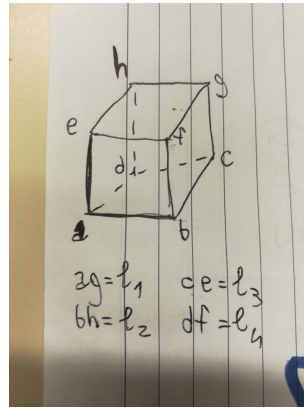 h
g
e
f
d
c
a
b
ag=l₁ ce=l₃
bh=l₂ df=l₄